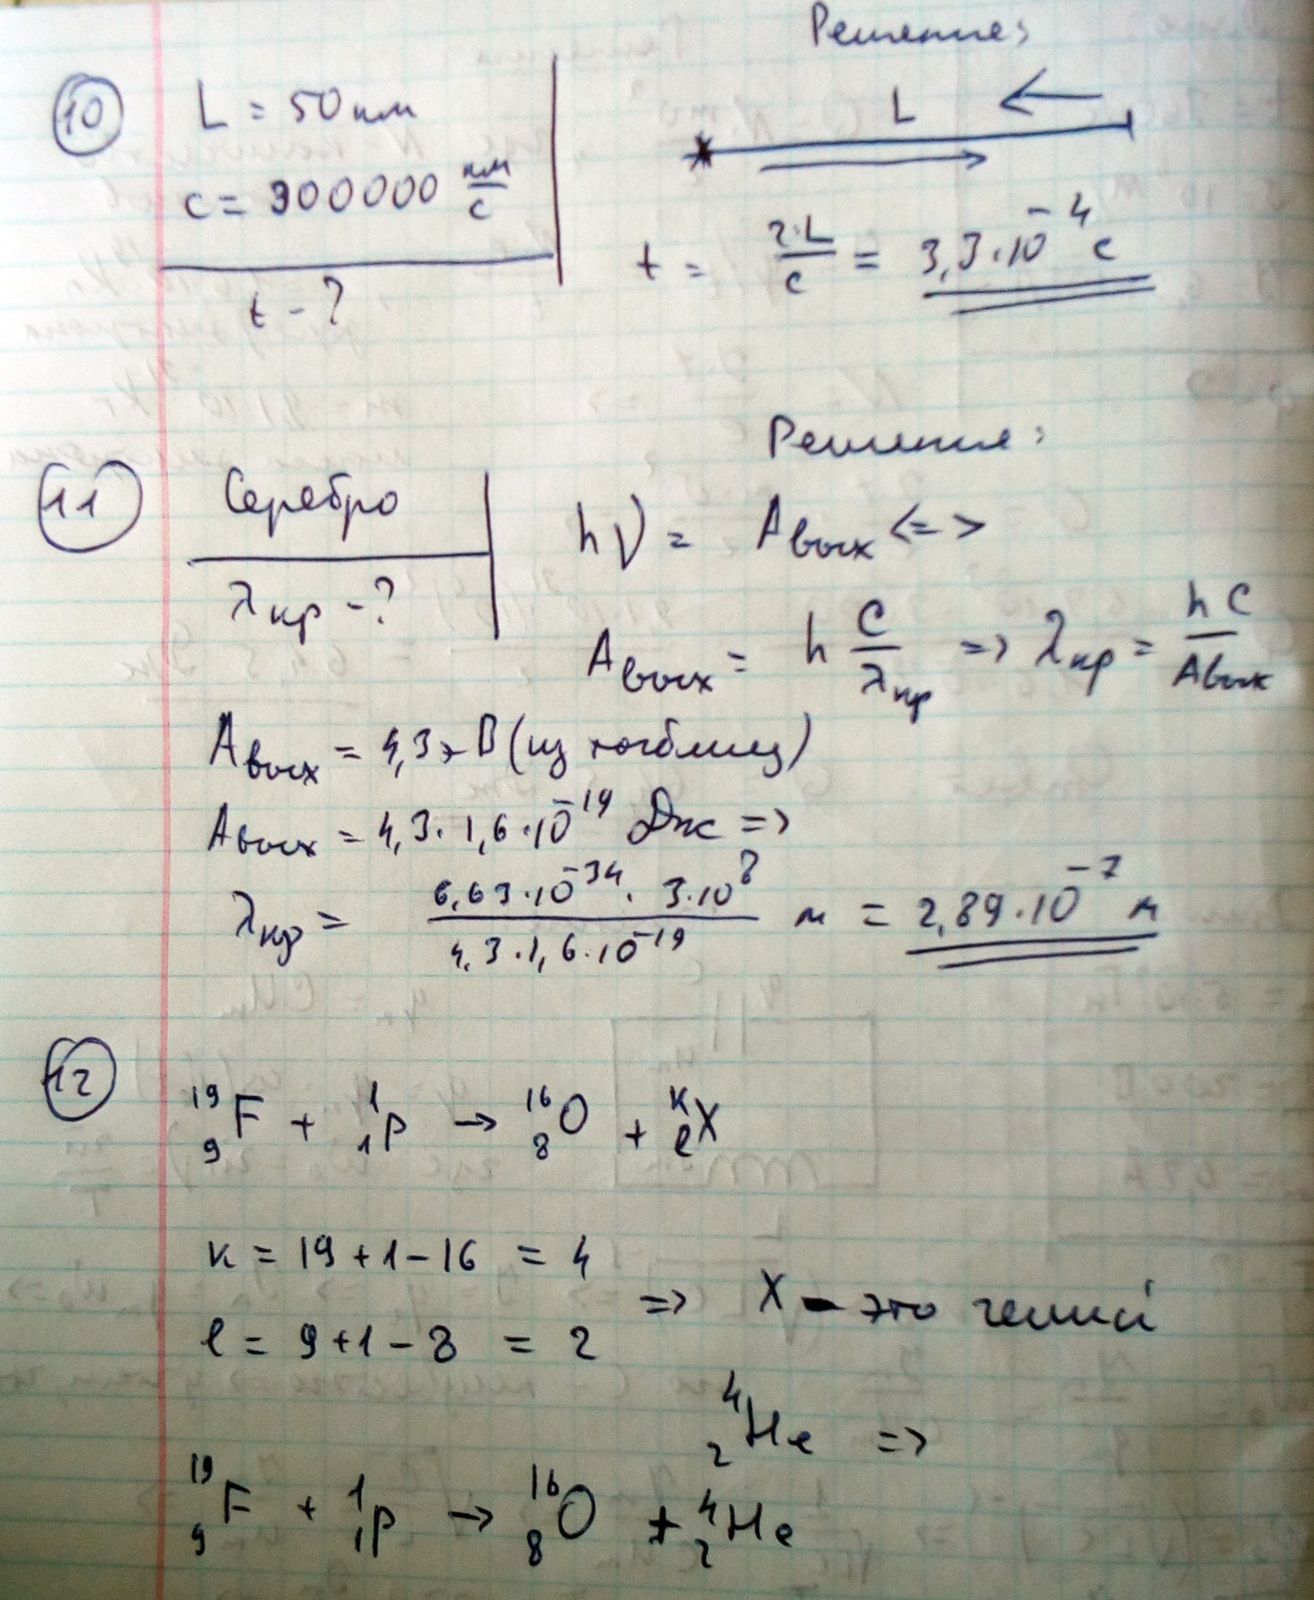 Решение:
10
L = 50 км
L
c = 300000 км/с
t - ?
t = 2·L/c = 3,3·10⁻⁴ с
Решение:
11
Серебро
hν = Aвых <=>
λкр - ?
Aвых = h C/λкр => λкр = hC/Aвых
Aвых = 4,3 эВ (из таблиц)
Aвых = 4,3·1,6·10⁻¹⁹ Дж =>
λкр = 6,63·10⁻³⁴·3·10⁸/4,3·1,6·10⁻¹⁹ м = 2,89·10⁻⁷ м
12
¹⁹₉F + ¹₁p → ¹⁶₈O + ᵏₗX
k = 19+1-16 = 4
l = 9+1-8 = 2
=> X - это гелий
⁴₂He =>
¹⁹₉F + ¹₁p → ¹⁶₈O + ⁴₂He